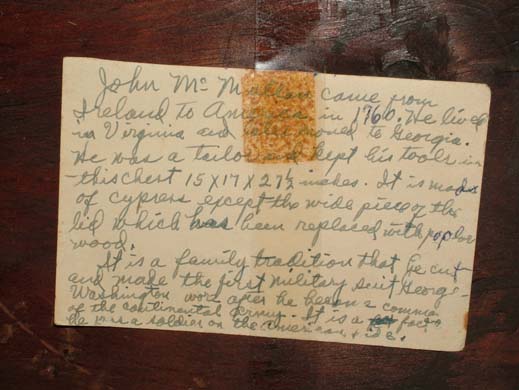 John Mc Mahan came from
Ireland to America in 1760. He lived
in Virginia and later moved to Georgia.
He was a tailor and kept his tools in
this chest 15 X 17 X 27½ inches. It is made
of cypress except the wide piece of the
lid which has been replaced with poplar
wood.
It is a family tradition that he cut
and made the first military suit George
Washington wore after he became comman
of the Continental Army. It is a fact
he was a soldier on the American side.